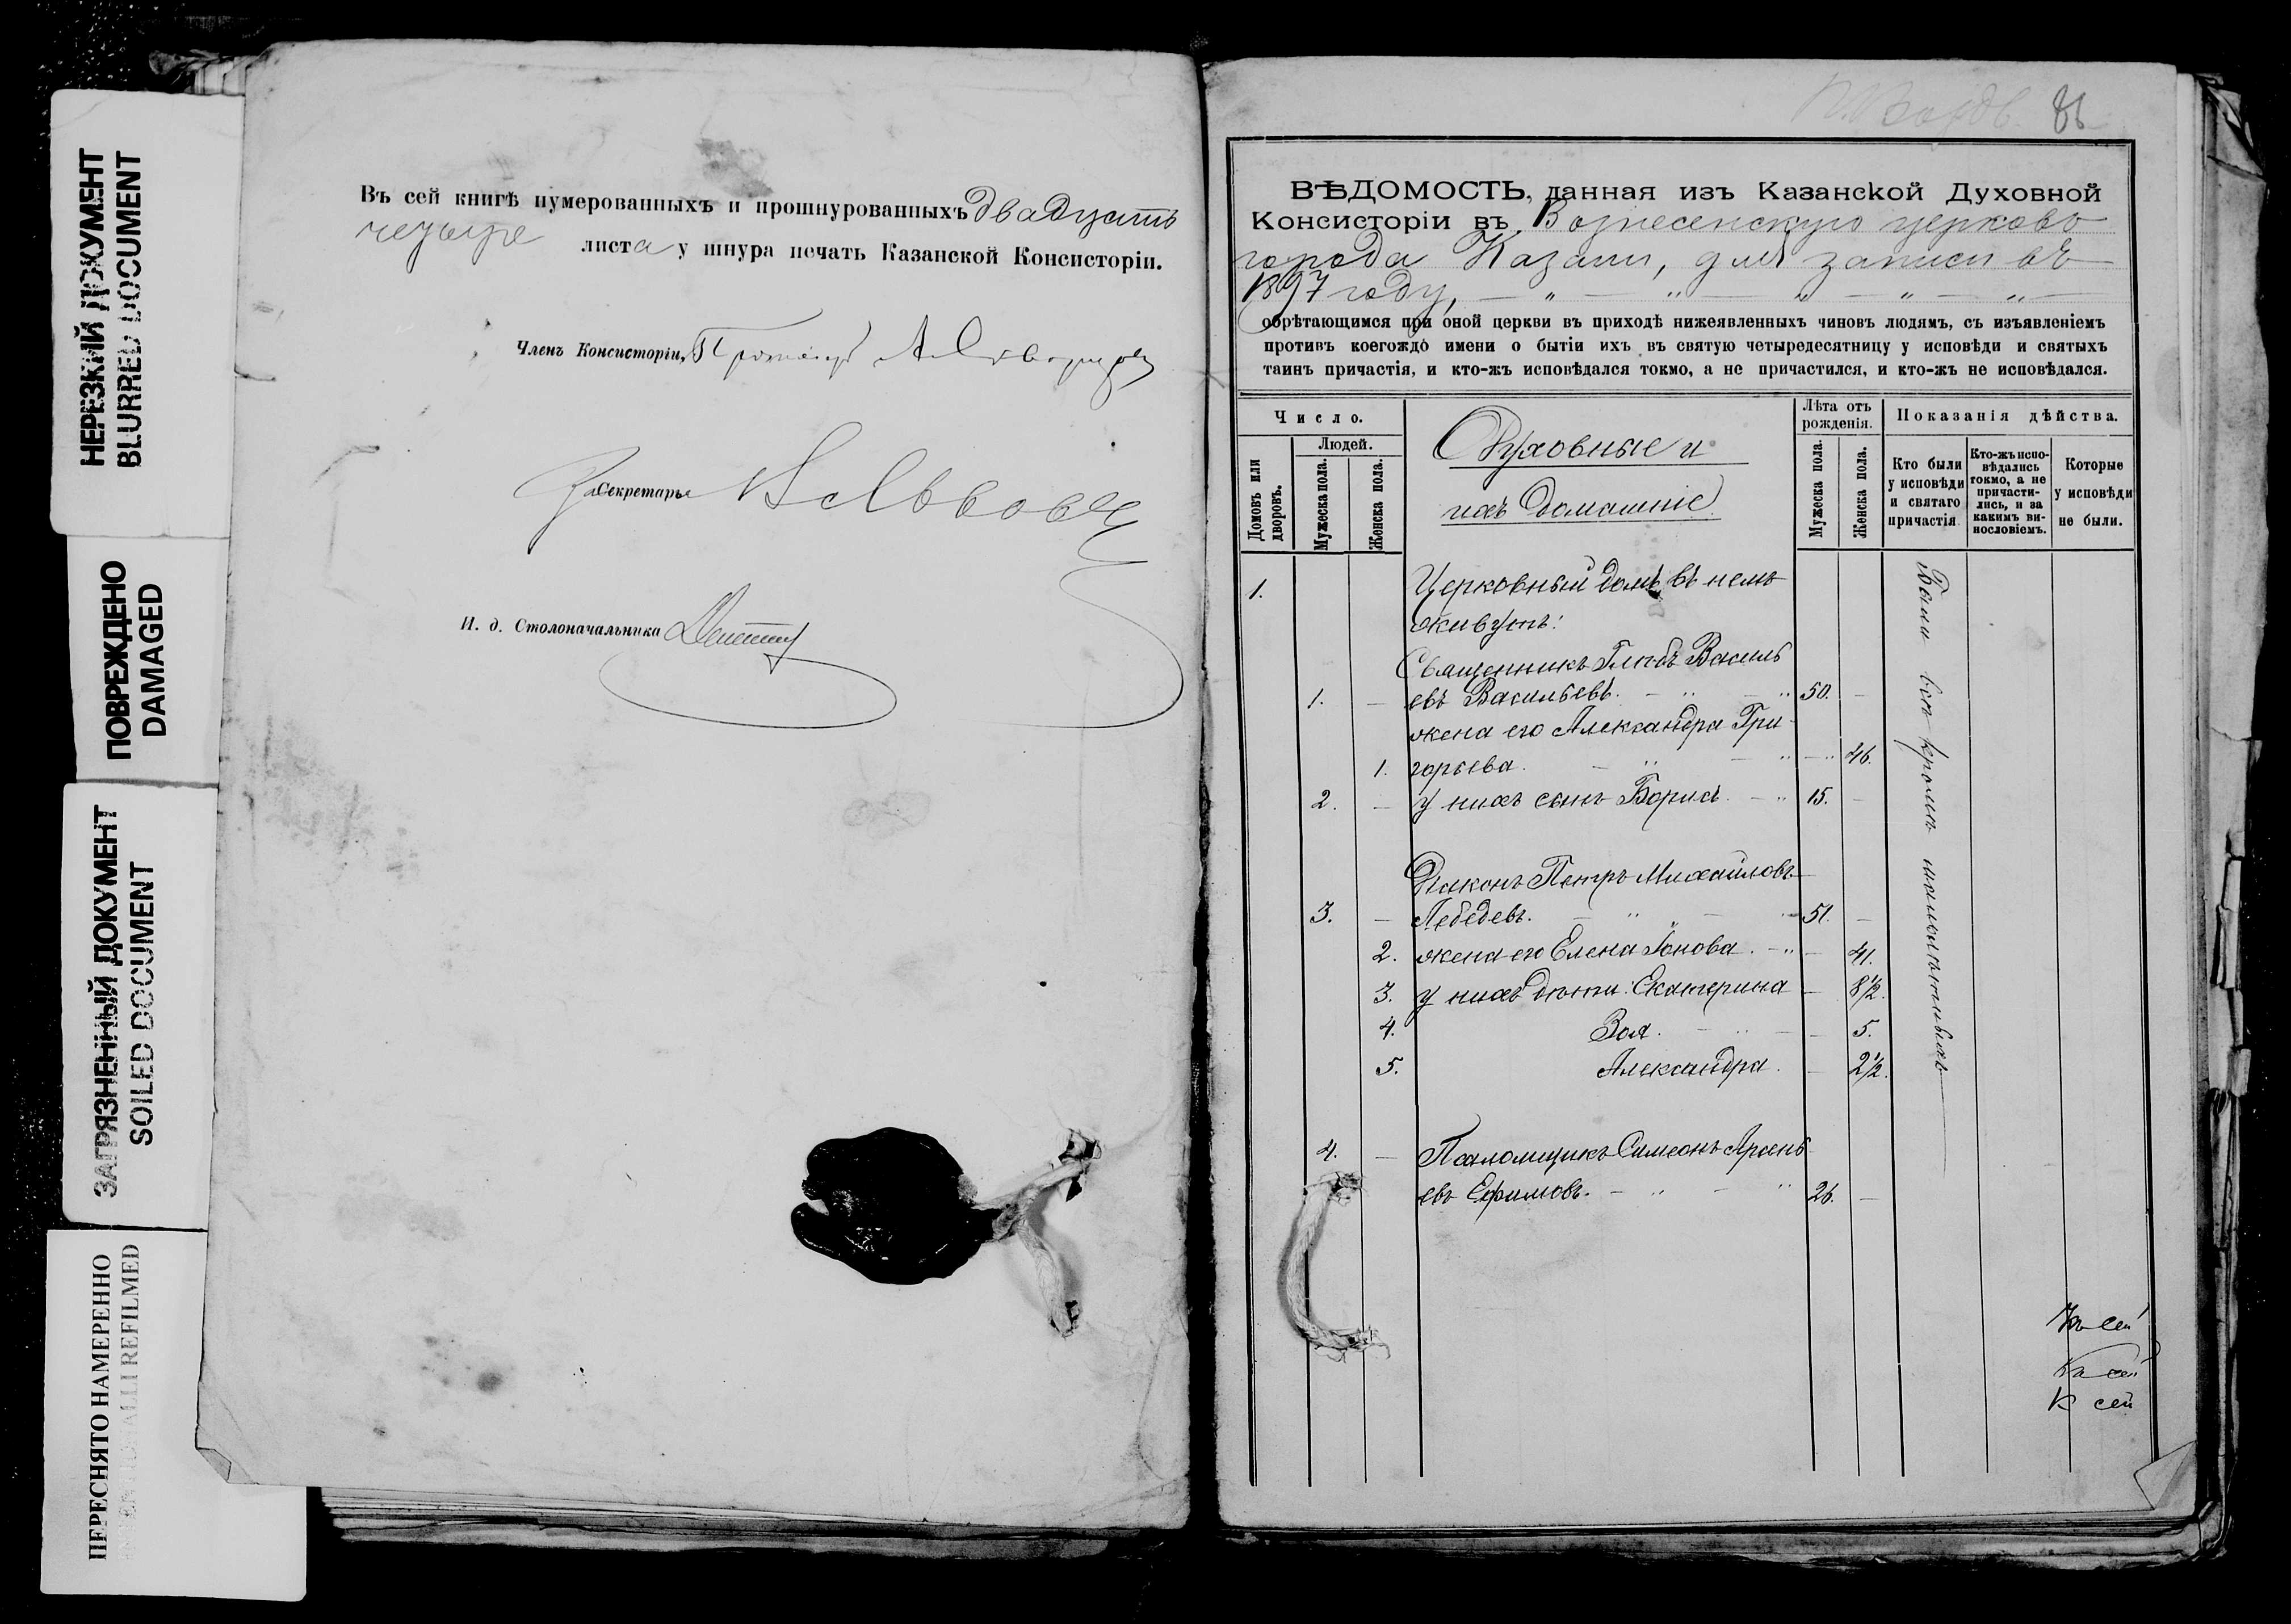 НЕРЕЗКИЙ ДОКУМЕНТ
BLURRED DOCUMENT
ПОВРЕЖДЕНО
DAMAGED
ЗАГРЯЗНЕННЫЙ ДОКУМЕНТ
SOILED DOCUMENT
ПЕРЕСНЯТО НАМЕРЕННО
REFILMED
Въ сей книгѣ нумерованныхъ и прошнурованныхъ двадцать
четыре листа у шнура печать Казанской Консисторіи.
Членъ Консисторіи,
За Секретарь
И. д. Столоначальника
86
ВѢДОМОСТЬ, данная изъ Казанской Духовной
Консисторіи въ Вознесенскую церковь
города Казани, для записи въ
1897 году,
обрѣтающимся при оной церкви въ приходѣ нижеявленныхъ чиновъ людямъ, съ изъявленіемъ
противъ коегождо имени о бытіи ихъ въ святую четыредесятницу у исповѣди и святыхъ
таинъ причастія, и кто-жъ исповѣдался токмо, а не причастился, и кто-жъ не исповѣдался.
Число.
Домовъ или дворовъ.
Людей.
Мужеска пола.
Женска пола.
Духовные и
ихъ домашніе
Лѣта отъ рожденія.
Мужеска пола.
Женска пола.
Показанія дѣйства.
Кто были у исповѣди и святаго причастія
Кто-жъ исповѣдались токмо, а не причастились, и за какимъ винословіемъ.
Которые у исповѣди не были.
1. Церковный домъ, въ немъ
живутъ:
Священникъ Глѣбъ Василь
1. — евъ Васильевъ. — " — " 50. —
жена его Александра Гри-
1. горьева. — " — " — " 46.
2. — у нихъ сынъ Борисъ. — " 15. —
Діаконъ Петръ Михайловъ
3. — Лебедевъ. — " — " 51. —
2. жена его Елена Іонова. — " — 41.
3. у нихъ дѣти: Екатерина — 8 1/2.
4. Зоя. — " — — 5.
5. Александра. — 2 1/2.
4. — Псаломщикъ Симеонъ Арсень
евъ Ефимовъ. — " — " 26. —
Были всѣ кромѣ малолѣтныхъ
Къ сей
Къ сей
К сей